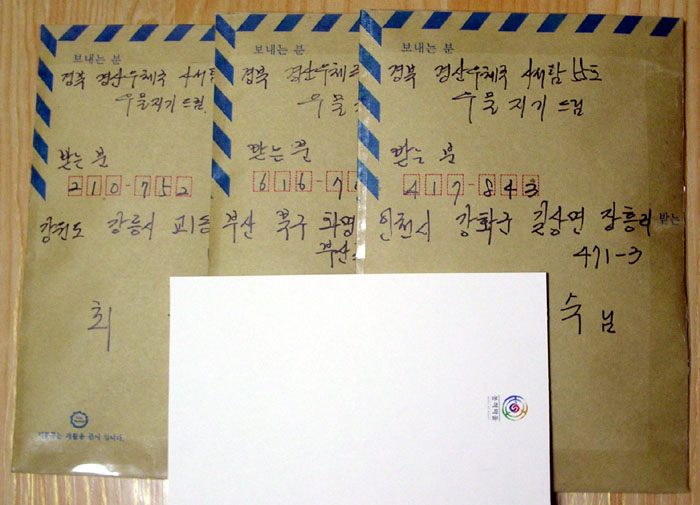 보내는 분
경북 경산우체국 사서함
우물지기 드림
받는 분
210-752
강원도 강릉시 교동
최
보내는 분
경북 경산우체국
우물
받는 분
616-7
부산 북구 화명
부산
보내는 분
경북 경산우체국 사서함
우물지기 드림
받는 분
417-843
인천시 강화군 길상면 장흥리
471-3
숙님
받는